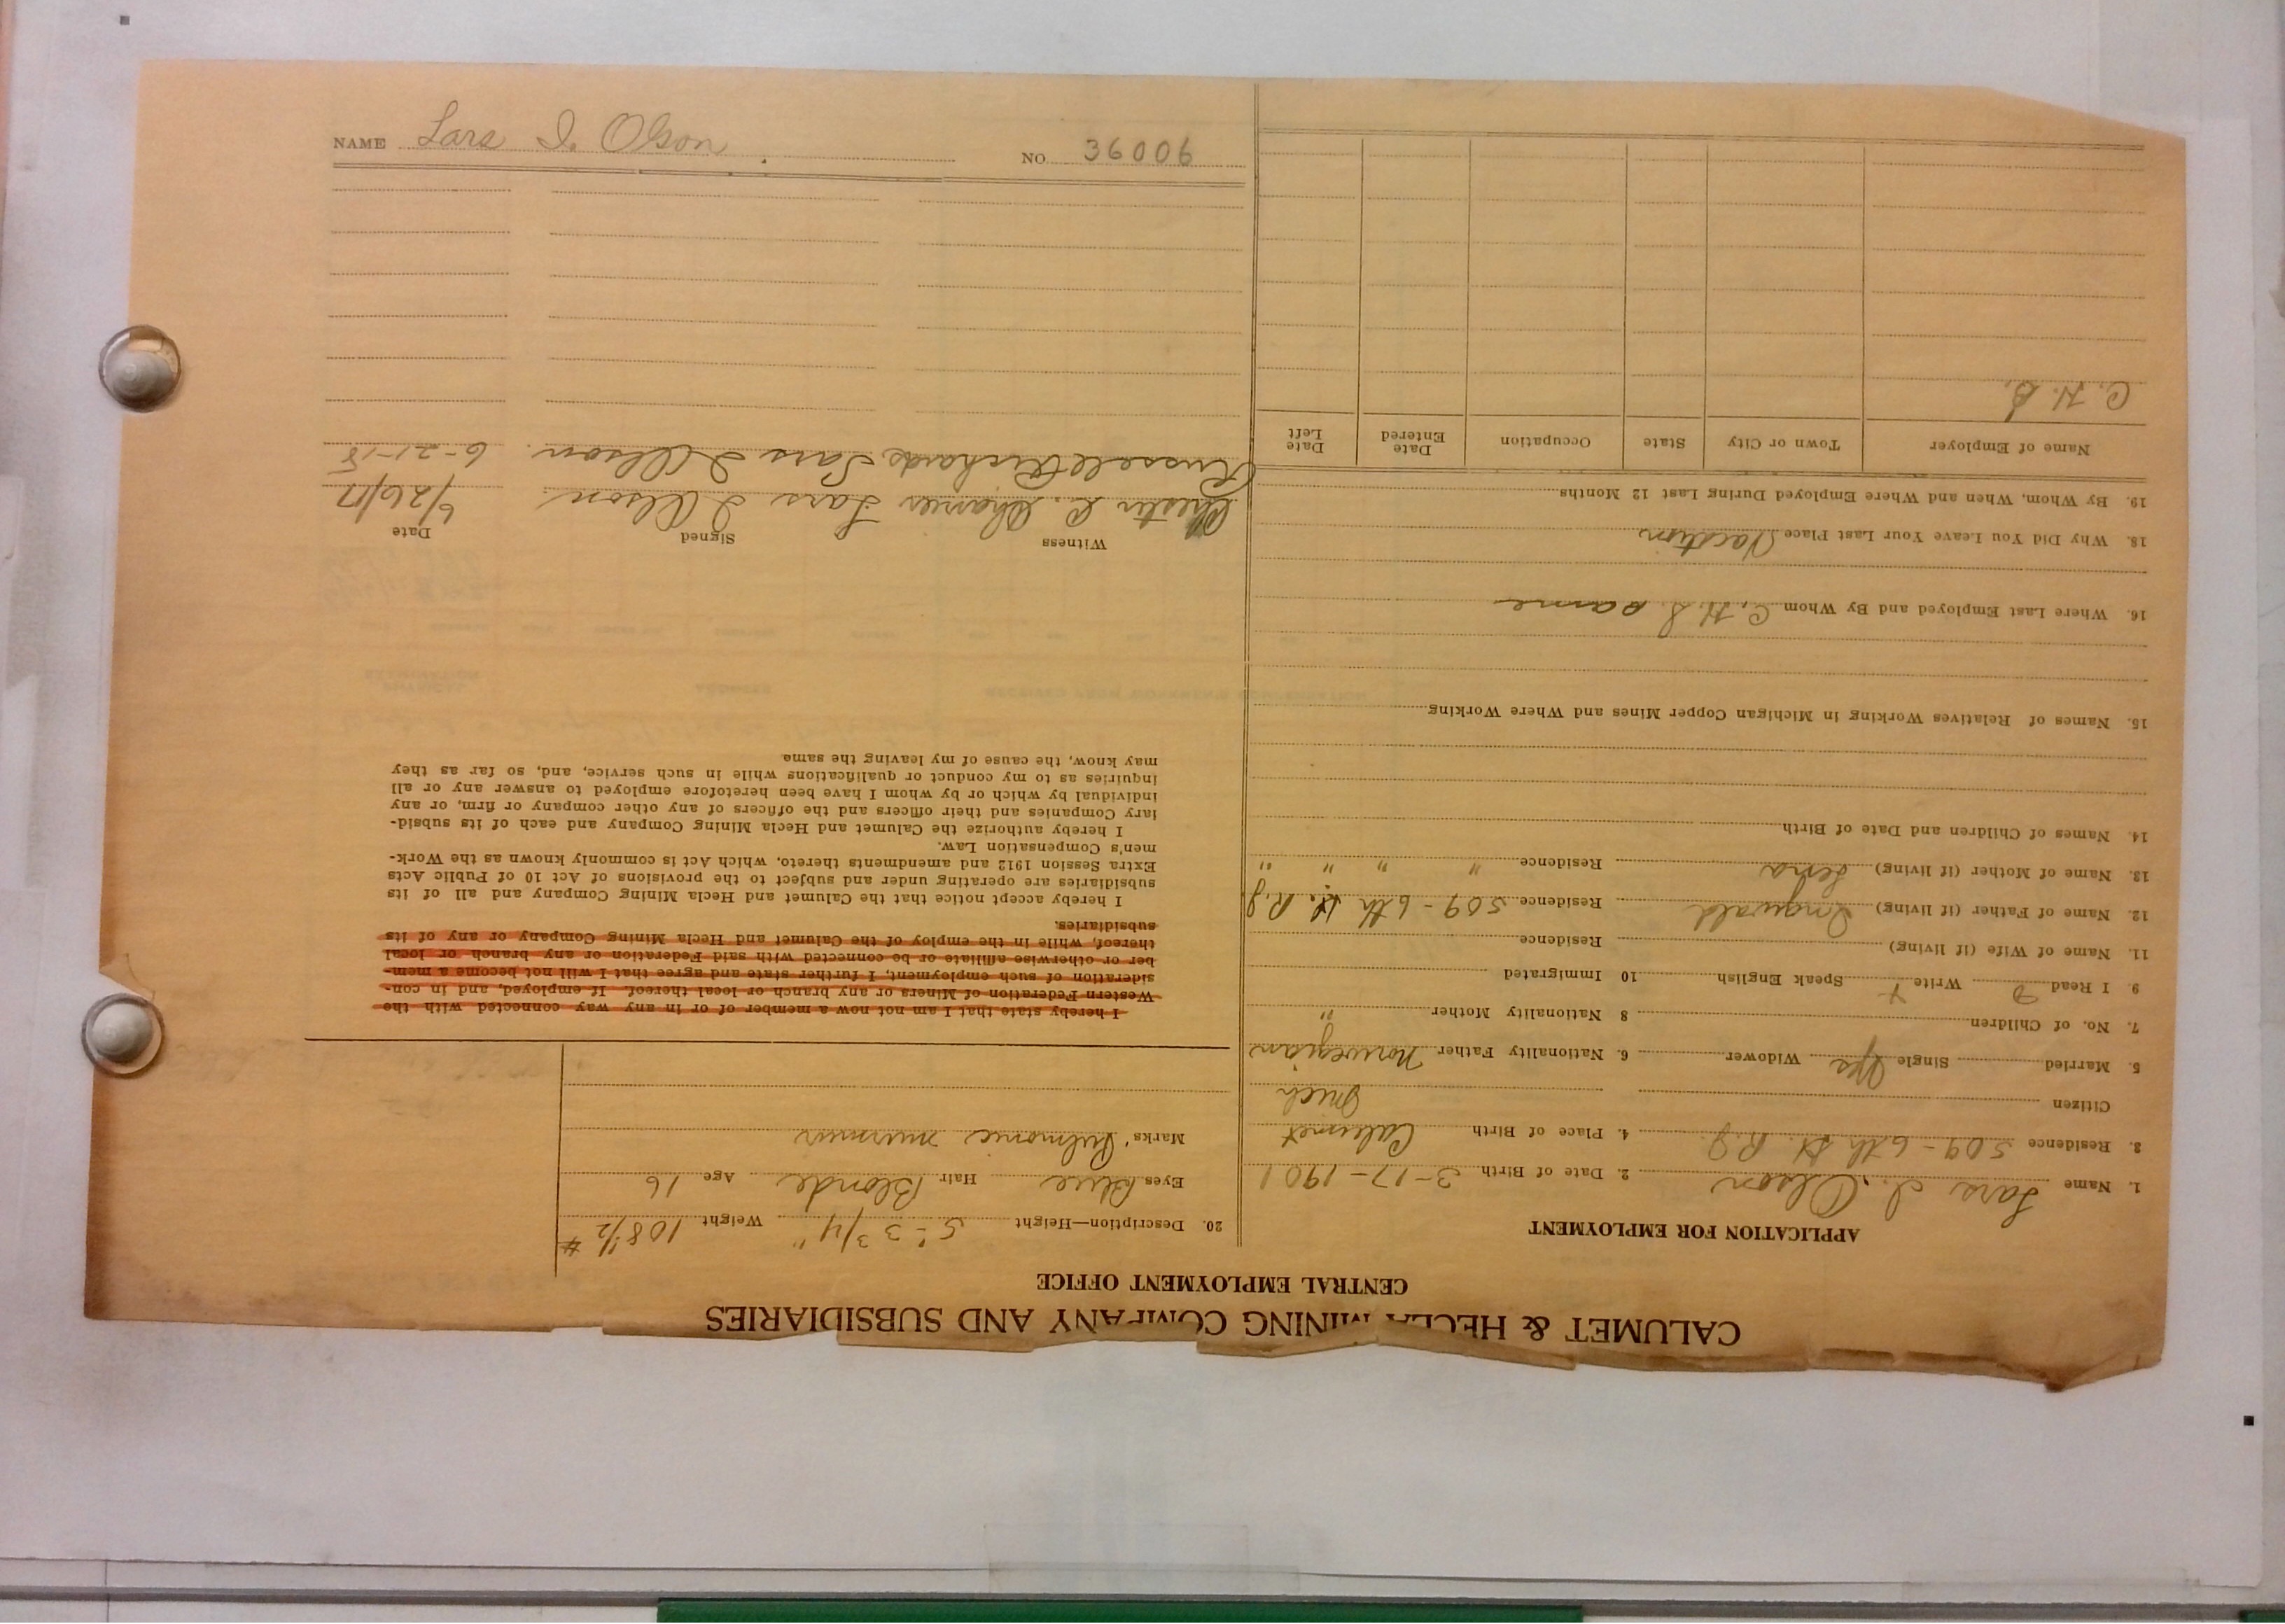 CALUMET & HECLA MINING COMPANY AND SUBSIDIARIES
CENTRAL EMPLOYMENT OFFICE
APPLICATION FOR EMPLOYMENT
1. Name Lars I. Olson 2. Date of Birth 3-17-1901
3. Residence 509-6th St R.J. 4. Place of Birth Calumet
Citizen Mich
5. Married Single Yes Widower 6. Nationality Father Norwegian
7. No. of Children 8 Nationality Mother "
9. I Read Write Speak English 10 Immigrated
11. Name of Wife (if living) Residence
12. Name of Father (if living) Ingwald Residence 509-6th St. R.J.
13. Name of Mother (if living) Lena Residence " " " "
14. Names of Children and Date of Birth
15. Names of Relatives Working in Michigan Copper Mines and Where Working
16. Where Last Employed and By Whom C. H. S. same
18. Why Did You Leave Your Last Place Vacation
19. By Whom, When and Where Employed During Last 12 Months
Name of Employer Town or City State Occupation Date Entered Date Left
C. H. S.
20. Description—Height 5'-3 3/4" Weight 108 1/2 #
Eyes Blue Hair Blonde Age 16
Marks Pulmonic murmur
I hereby state that I am not now a member of or in any way connected with the
Western Federation of Miners or any branch or local thereof. If employed, and in con-
sideration of such employment, I further state and agree that I will not become a mem-
ber or otherwise affiliate or be connected with said Federation or any branch or local
thereof, while in the employ of the Calumet and Hecla Mining Company or any of its
subsidiaries.
I hereby accept notice that the Calumet and Hecla Mining Company and all of its
subsidiaries are operating under and subject to the provisions of Act 10 of Public Acts
Extra Session 1912 and amendments thereto, which Act is commonly known as the Work-
men's Compensation Law.
I hereby authorize the Calumet and Hecla Mining Company and each of its subsid-
iary Companies and their officers and the officers of any other company or firm, or any
individual by which or by whom I have been heretofore employed to answer any or all
inquiries as to my conduct or qualifications while in such service, and, so far as they
may know, the cause of my leaving the same
Witness Signed Date
Chester Lars I Olson 6/26/17
Russell Richards Lars I Olson. 6-21-18
NAME Lars I. Olson NO 36006